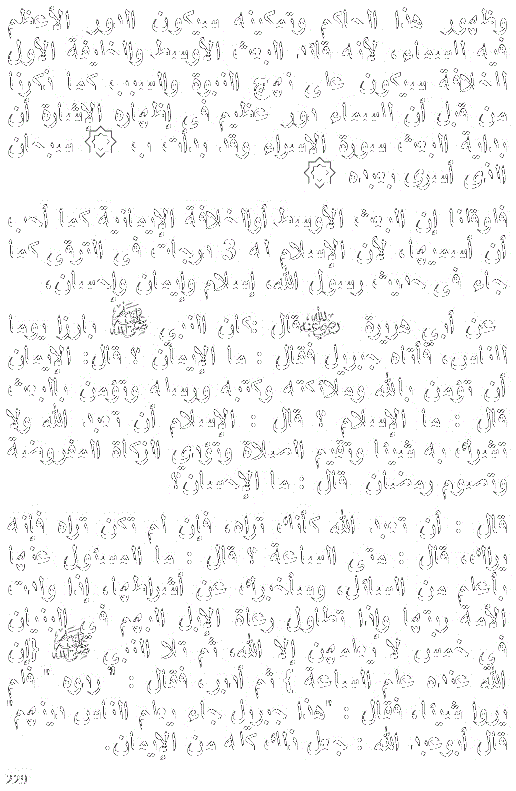 وظهور هذا الحاكم وتمكينه سيكون الدور الأعظم
فيه للسماء، لأنه قائد البعث الأوسط والخليفة الأول
الخلافة سيكون على نهج النبوة والسبب كما ذكرنا
من قبل أن للسماء دور عظيم في إظهاره الإشارة أن
بداية البعث سورة الإسراء وقد بدأت ب سبحان
الذي أسرى بعبده
قلوقلنا إن البعث الأوسط أوالخلافة الإيمانية كما أحب
أن أسميها، لأن الإسلام له 3 درجات في الترقي كما
جاء في حديث رسول الله، إسلام وإيمان وإحسان،
عن أبي هريرة قال :كان النبي ﷺ بارزا يوما
للناس، فأتاه جبريل فقال : ما الإيمان ؟ قال: الإيمان
أن تؤمن بالله وملائكته وكتبه ورسله وتؤمن بالبعث
قال : ما الإسلام ؟ قال : الإسلام أن تعبد الله ولا
تشرك به شيئا وتقيم الصلاة وتؤدي الزكاة المفروضة
وتصوم رمضان قال : ما الإحسان؟
قال : أن تعبد الله كأنك تراه، فإن لم تكن تراه فإنه
يراك، قال : متى الساعة ؟ قال : ما المسئول عنها
بأعلم من السائل، وسأخبرك عن أشراطها، إذا ولدت
الأمة ربتها وإذا تطاول رعاة الإبل البهم في البنيان
في خمس لا يعلمهن إلا الله، ثم تلا النبي ﷺ {إن
الله عنده علم الساعة } ثم أدبر، فقال : " ردوه " فلم
يروا شيئا، فقال : "هذا جبريل جاء يعلم الناس دينهم"
قال أبوعبد الله : جعل ذلك كله من الإيمان.
229